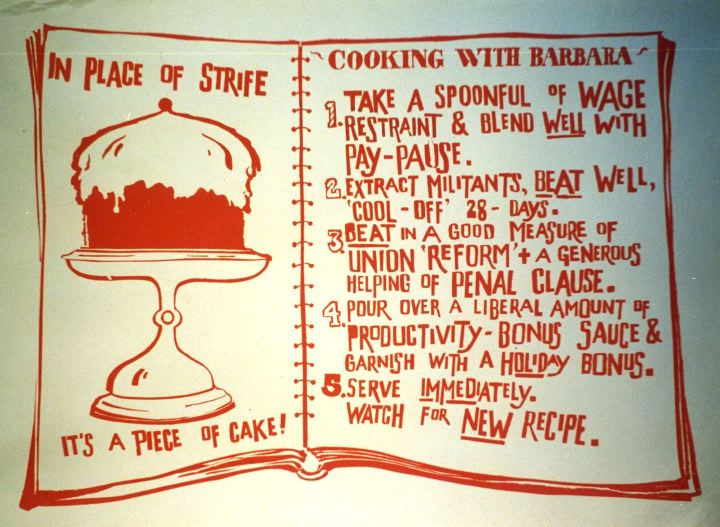 IN PLACE OF STRIFE
IT'S A PIECE OF CAKE!
COOKING WITH BARBARA
1. TAKE A SPOONFUL OF WAGE
RESTRAINT & BLEND WELL WITH
PAY-PAUSE.
2. EXTRACT MILITANTS, BEAT WELL,
'COOL-OFF' 28-DAYS.
3. BEAT IN A GOOD MEASURE OF
UNION 'REFORM' + A GENEROUS
HELPING OF PENAL CLAUSE.
4. POUR OVER A LIBERAL AMOUNT OF
PRODUCTIVITY-BONUS SAUCE &
GARNISH WITH A HOLIDAY BONUS.
5. SERVE IMMEDIATELY.
WATCH FOR NEW RECIPE.